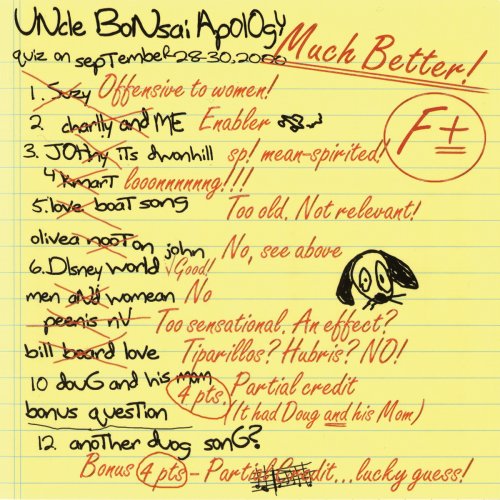 UNcle BoNsai ApolOgy
quiz on sepTembeR 28-30, 2000
Much Better!
F±
1. Suzy Offensive to women!
2. charlly and ME Enabler
3. JOHNy iTs dwonhill sp! mean-spirited!
4 KmarT looonnnnnng!!!
5. love boaT song Too old. Not relevant!
olivea nooTon john No, see above
6. DIsney world √Good!
men aNd womean No
peenis nV Too sensational. An effect?
bill board love Tiparillos? Hubris? NO!
10 douG and his mom 4 pts. Partial credit
bonus quesTion (It had Doug and his Mom)
12. anoTher duog sonG?
Bonus 4 pts - Partial Credit...lucky guess!